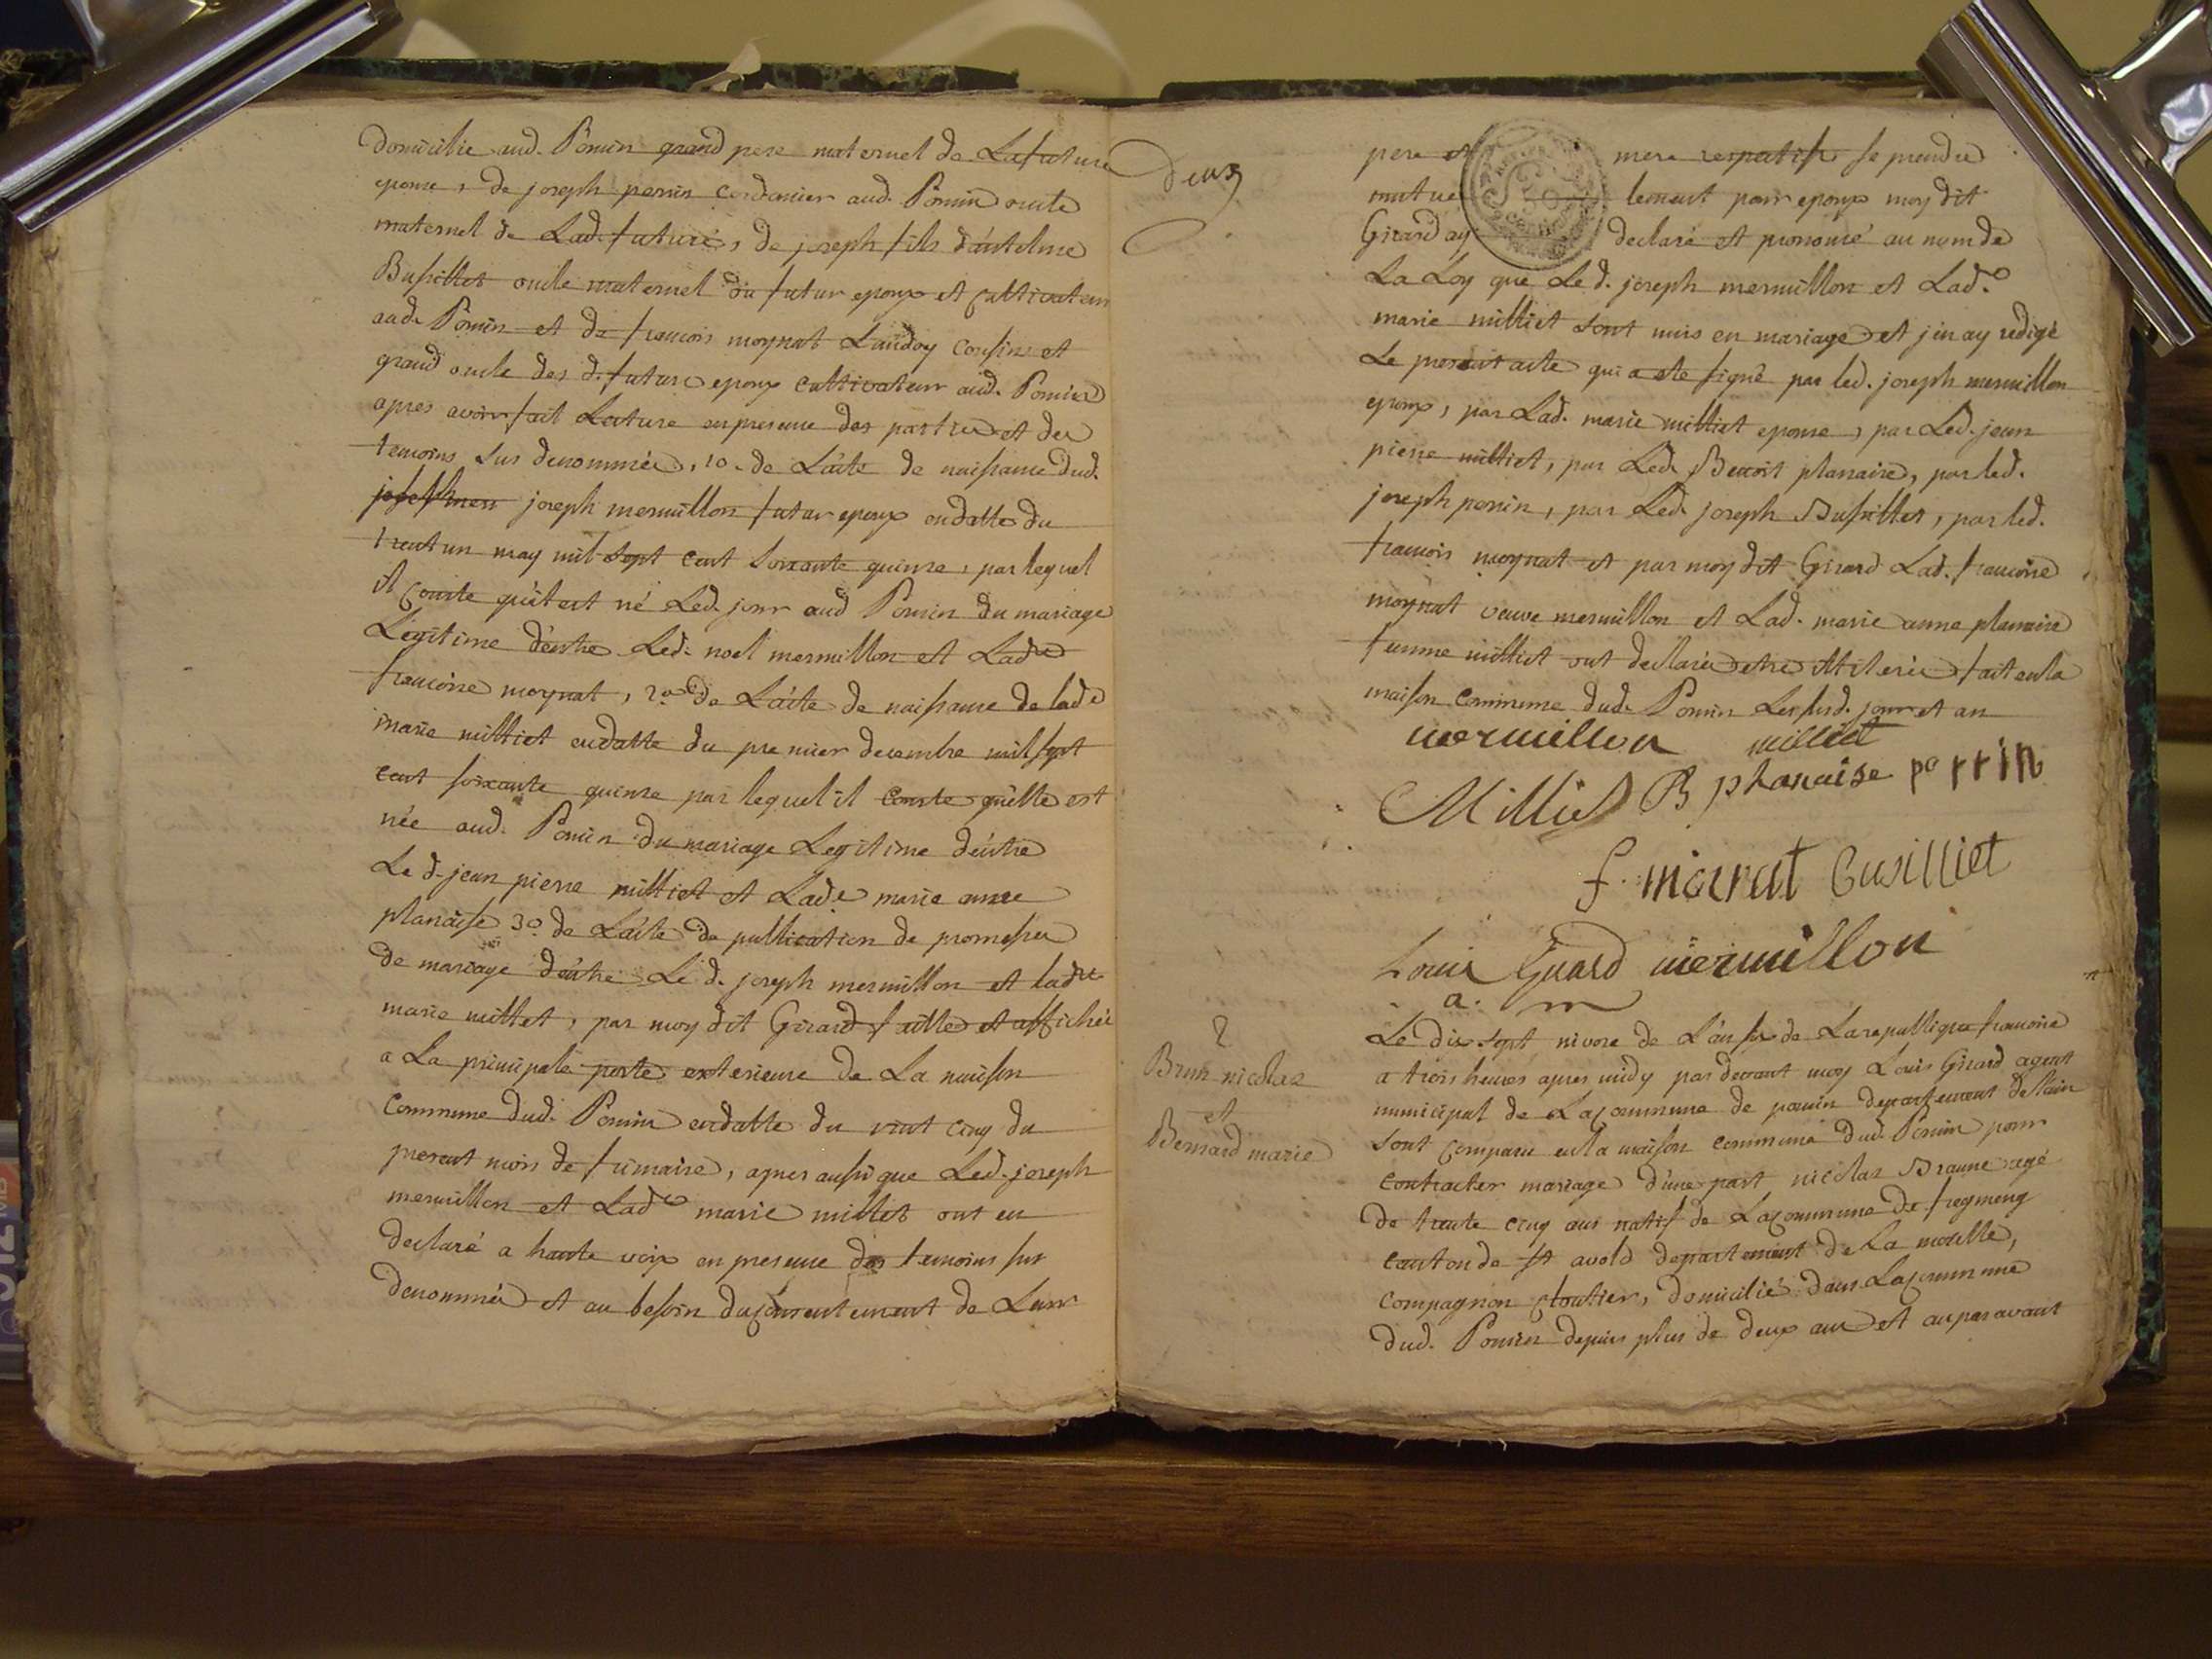 domicilie aud. Poncin grand pere maternel de La future
epouse, de joseph perrin cordonier aud. Poncin oncle
maternel de Lad. future, de joseph fils d'antelme
Busillet oncle maternel du futur epoux et Cultivateur
aud. Poncin et de francois moynat Landoy Cousin et
grand oncle des d. futurs epoux cultivateur aud. Poncin
apres avoir fait Lecture en presence des parties et des
temoins sus denommés, 1o. de L'acte de naissance dud.
joseph mermillon futur epoux en datte du
trent un may mil sept cent soixante quinze, par lequel
il Conste qu'il est né Led. jour aud Poncin du mariage
Legitime d'entre Led. noel mermillon et Lade
francoise moynat, 2o. de L'acte de naissance de lade
marie milliet en datte du premier decembre mil sept
cent soixante quinze par lequel il Conste qu'elle est
née aud. Poncin du mariage Legitime d'entre
Le d. jean pierre milliet et Lade marie anne
planaise 3o. de L'acte de publication de promesses
de mariage d'entre Le d. joseph mermillon et lade
marie milliet, par moy dit Girard faitte et affichée
a La principale porte exterieure de La maison
Commune dud. Poncin en datte du vint cinq du
present mois de frimaire, apres aussi que Led. joseph
mermillon et Lade marie milliet ont eu
declaré a haute voix en presence des temoins sus
denommés et au besoin du Consentement de Leur
deux
pere et mere respectifs se prendre
mutuellement pour epoux moy dit
Girard ay declaré et prononcé au nom de
La Loy que Le d. joseph mermillon et Lade
marie milliet sont unis en mariage et j'en ay redigé
Le present acte qui a ete signé par led. joseph mermillon
epoux, par Lad. marie milliet epouse, par Led. jean
pierre milliet, par Led. Benoit planaise, par led.
joseph perrin, par Led. joseph Busillet, par led.
francois moynat et par moy dit Girard Lad. francoise
moynat veuve mermillon et Lad. marie anne planaise
femme milliet ont declaré etre illiterée fait en la
maison commune dud. Poncin Les susd. jour et an
mermillon milliet
Milliet B planaise perrin
f. moinat Busilliet
Louis Girard mermillon
a. m
2
Brun nicolas
et
Bernard marie
Le dix sept nivose de L'an six de La republique francoise
a trois heures apres midy par devant moy Louis Girard agent
municipal de La Commune de poncin departement de L'ain
sont Comparu en la maison commune dud. Poncin pour
contracter mariage d'une part nicolas Braune agé
de trante cinq ans natif de La Commune de fregmeng
canton de st avold departement de La moselle,
compagnon cloutier, domicilié dans La Commune
dud. Poncin depuis plus de deux ans et auparavant